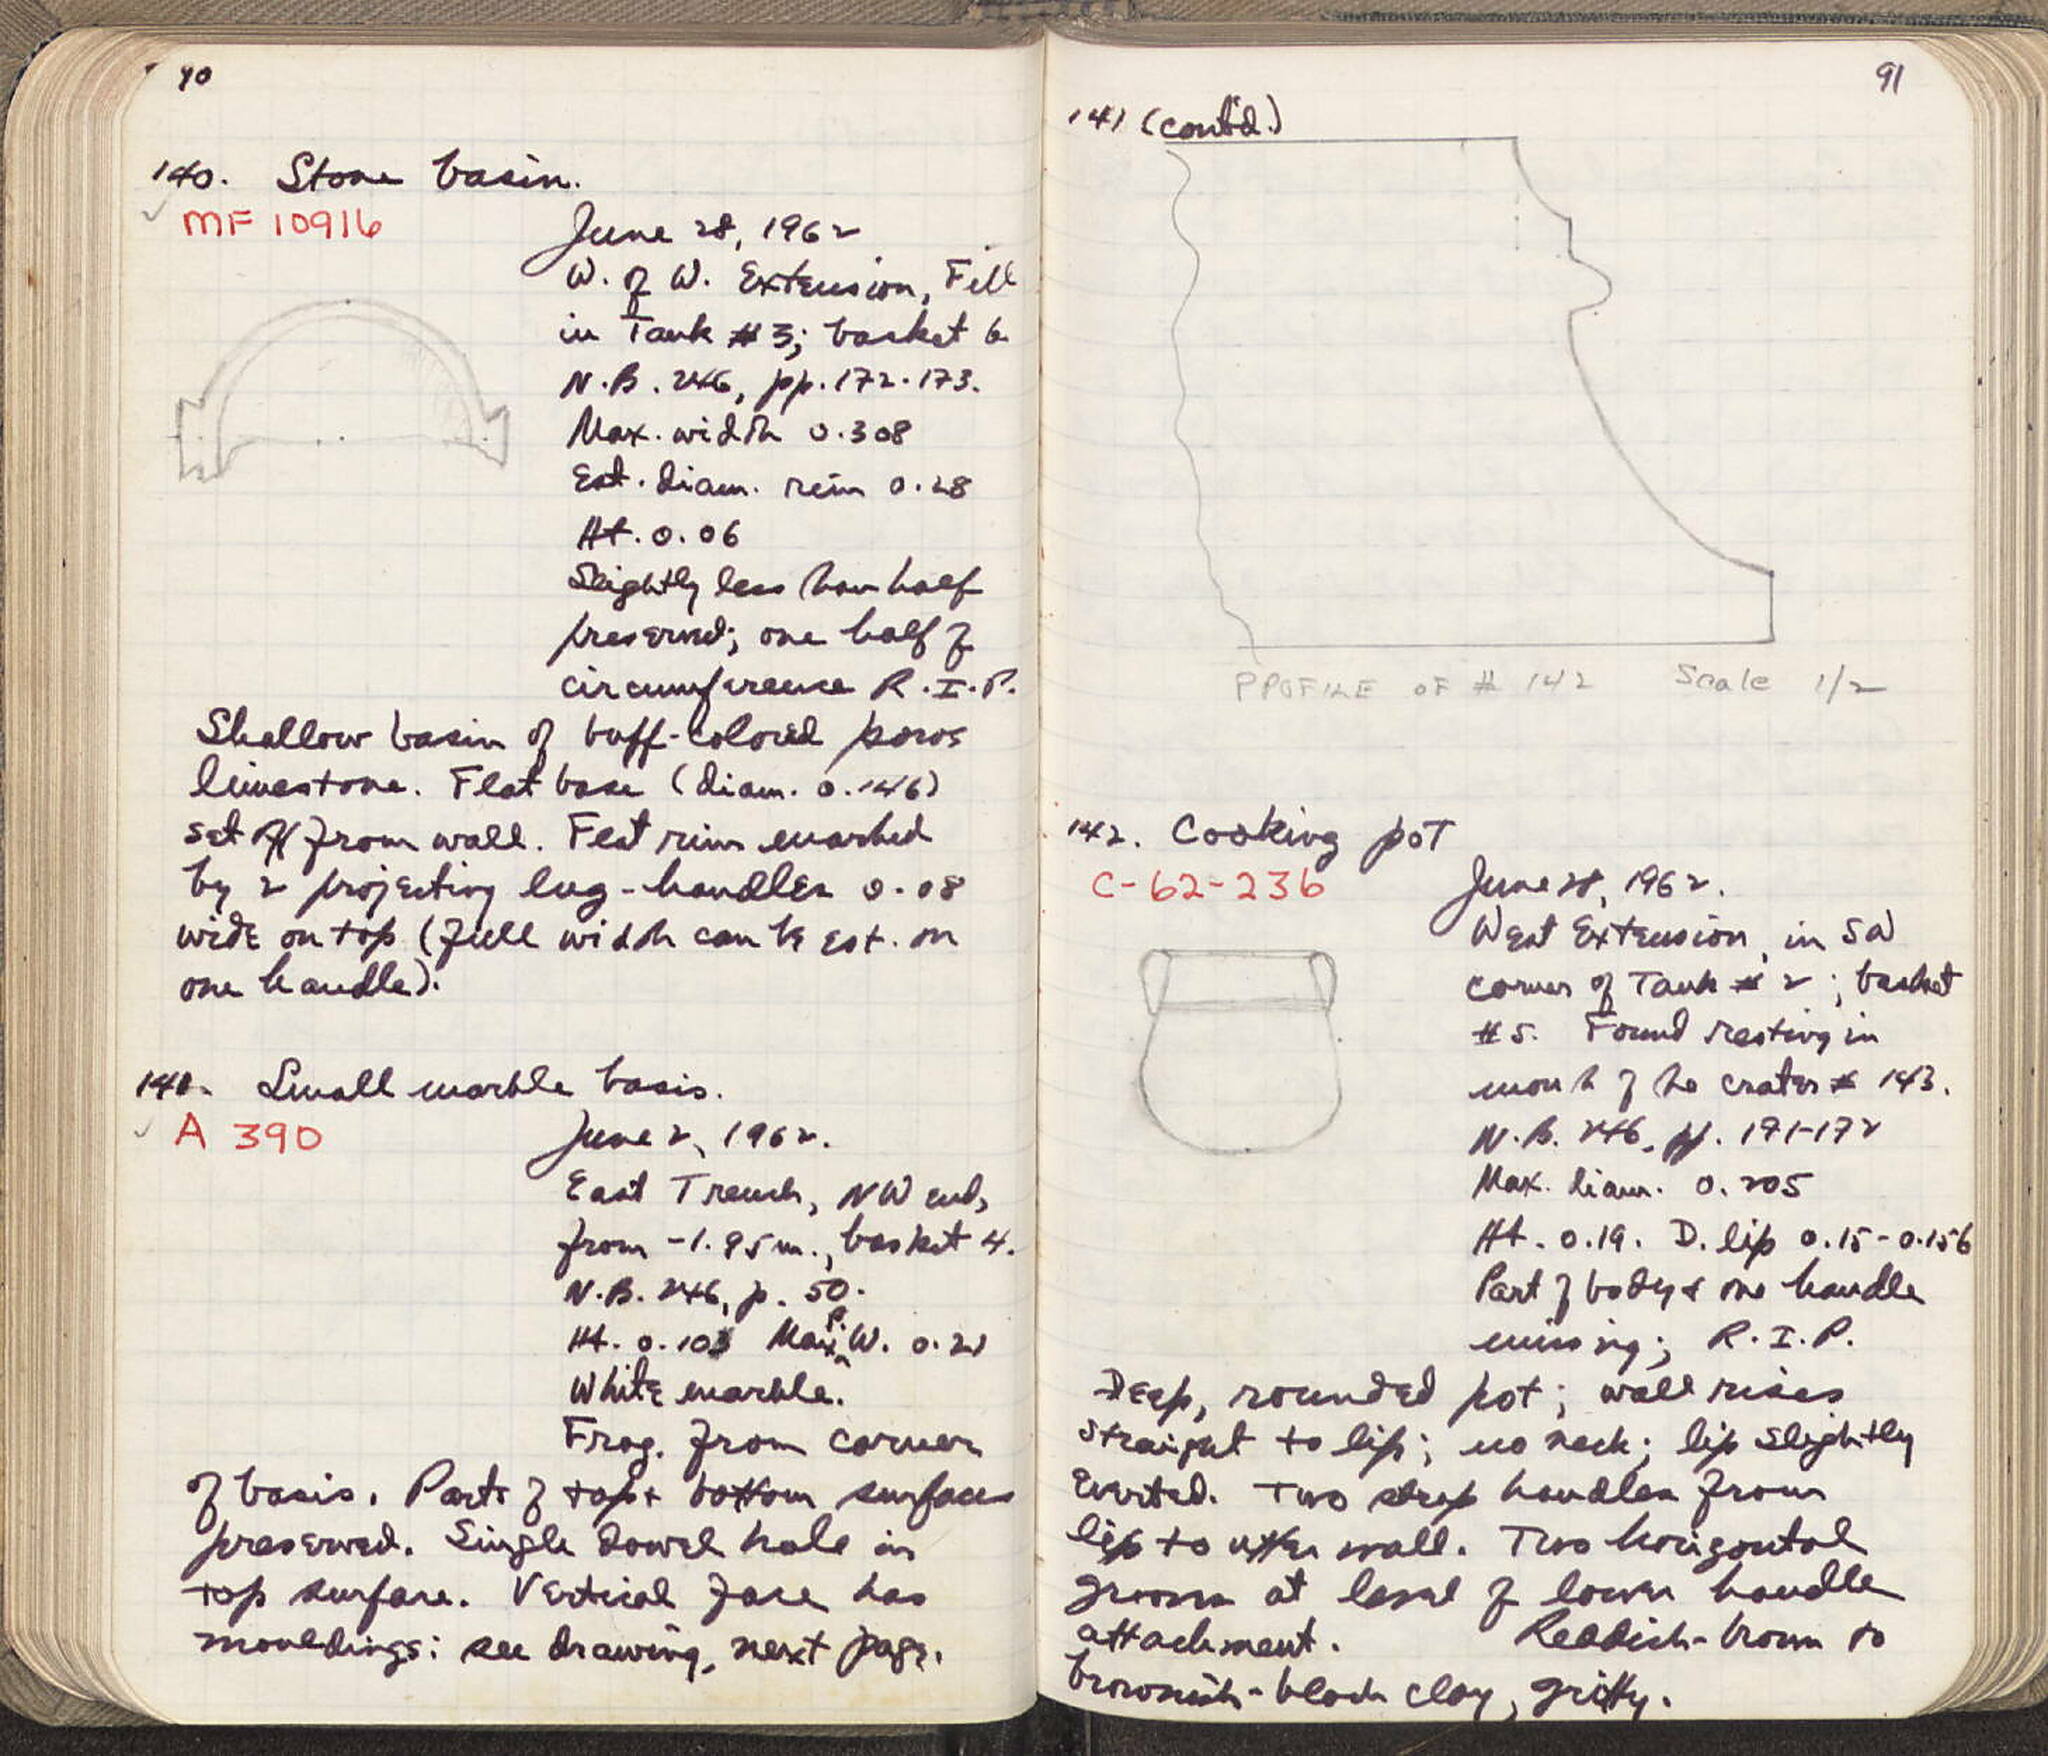 90
140. Stone basin.
MF 10916
June 28, 1962
W. of W. Extension, Fill
in Tank #3; basket 6
N.B. 246, pp. 172-173.
Max. width 0.308
Est. diam. rim 0.28
Ht. 0.06
Slightly less than half
preserved; one half of
circumference R.I.P.
Shallow basin of buff-colored poros
limestone. Flat base (diam. 0.146)
set off from wall. Flat rim marked
by 2 projecting lug-handles 0.08
wide on top (full width can be est. on
one handle).
141. Small marble basis.
A 390
June 2, 1962.
East Trench, NW end,
from -1.95m., basket 4.
N.B. 246, p. 50.
Ht. 0.103 Max. P. W. 0.21
White marble.
Frag. from corner
of basis. Parts of top + bottom surfaces
preserved. Single dowel hole in
top surface. Vertical face has
mouldings: see drawing, next page.
91
141 (cont'd.)
PROFILE OF # 142 Scale 1/2
142. Cooking pot
C-62-236
June 28, 1962.
West Extension, in SW
corner of Tank # 2; basket
#5. Found resting in
mouth of the crater # 143.
N.B. 246, pp. 171-172
Max. diam. 0.205
Ht. 0.19. D. lip 0.15-0.156
Part of body + one handle
missing; R.I.P.
Deep, rounded pot; wall rises
straight to lip; no neck; lip slightly
everted. Two strap handles from
lip to upper wall. Two horizontal
grooves at level of lower handle
attachment. Reddish-brown to
brownish-black clay, gritty.